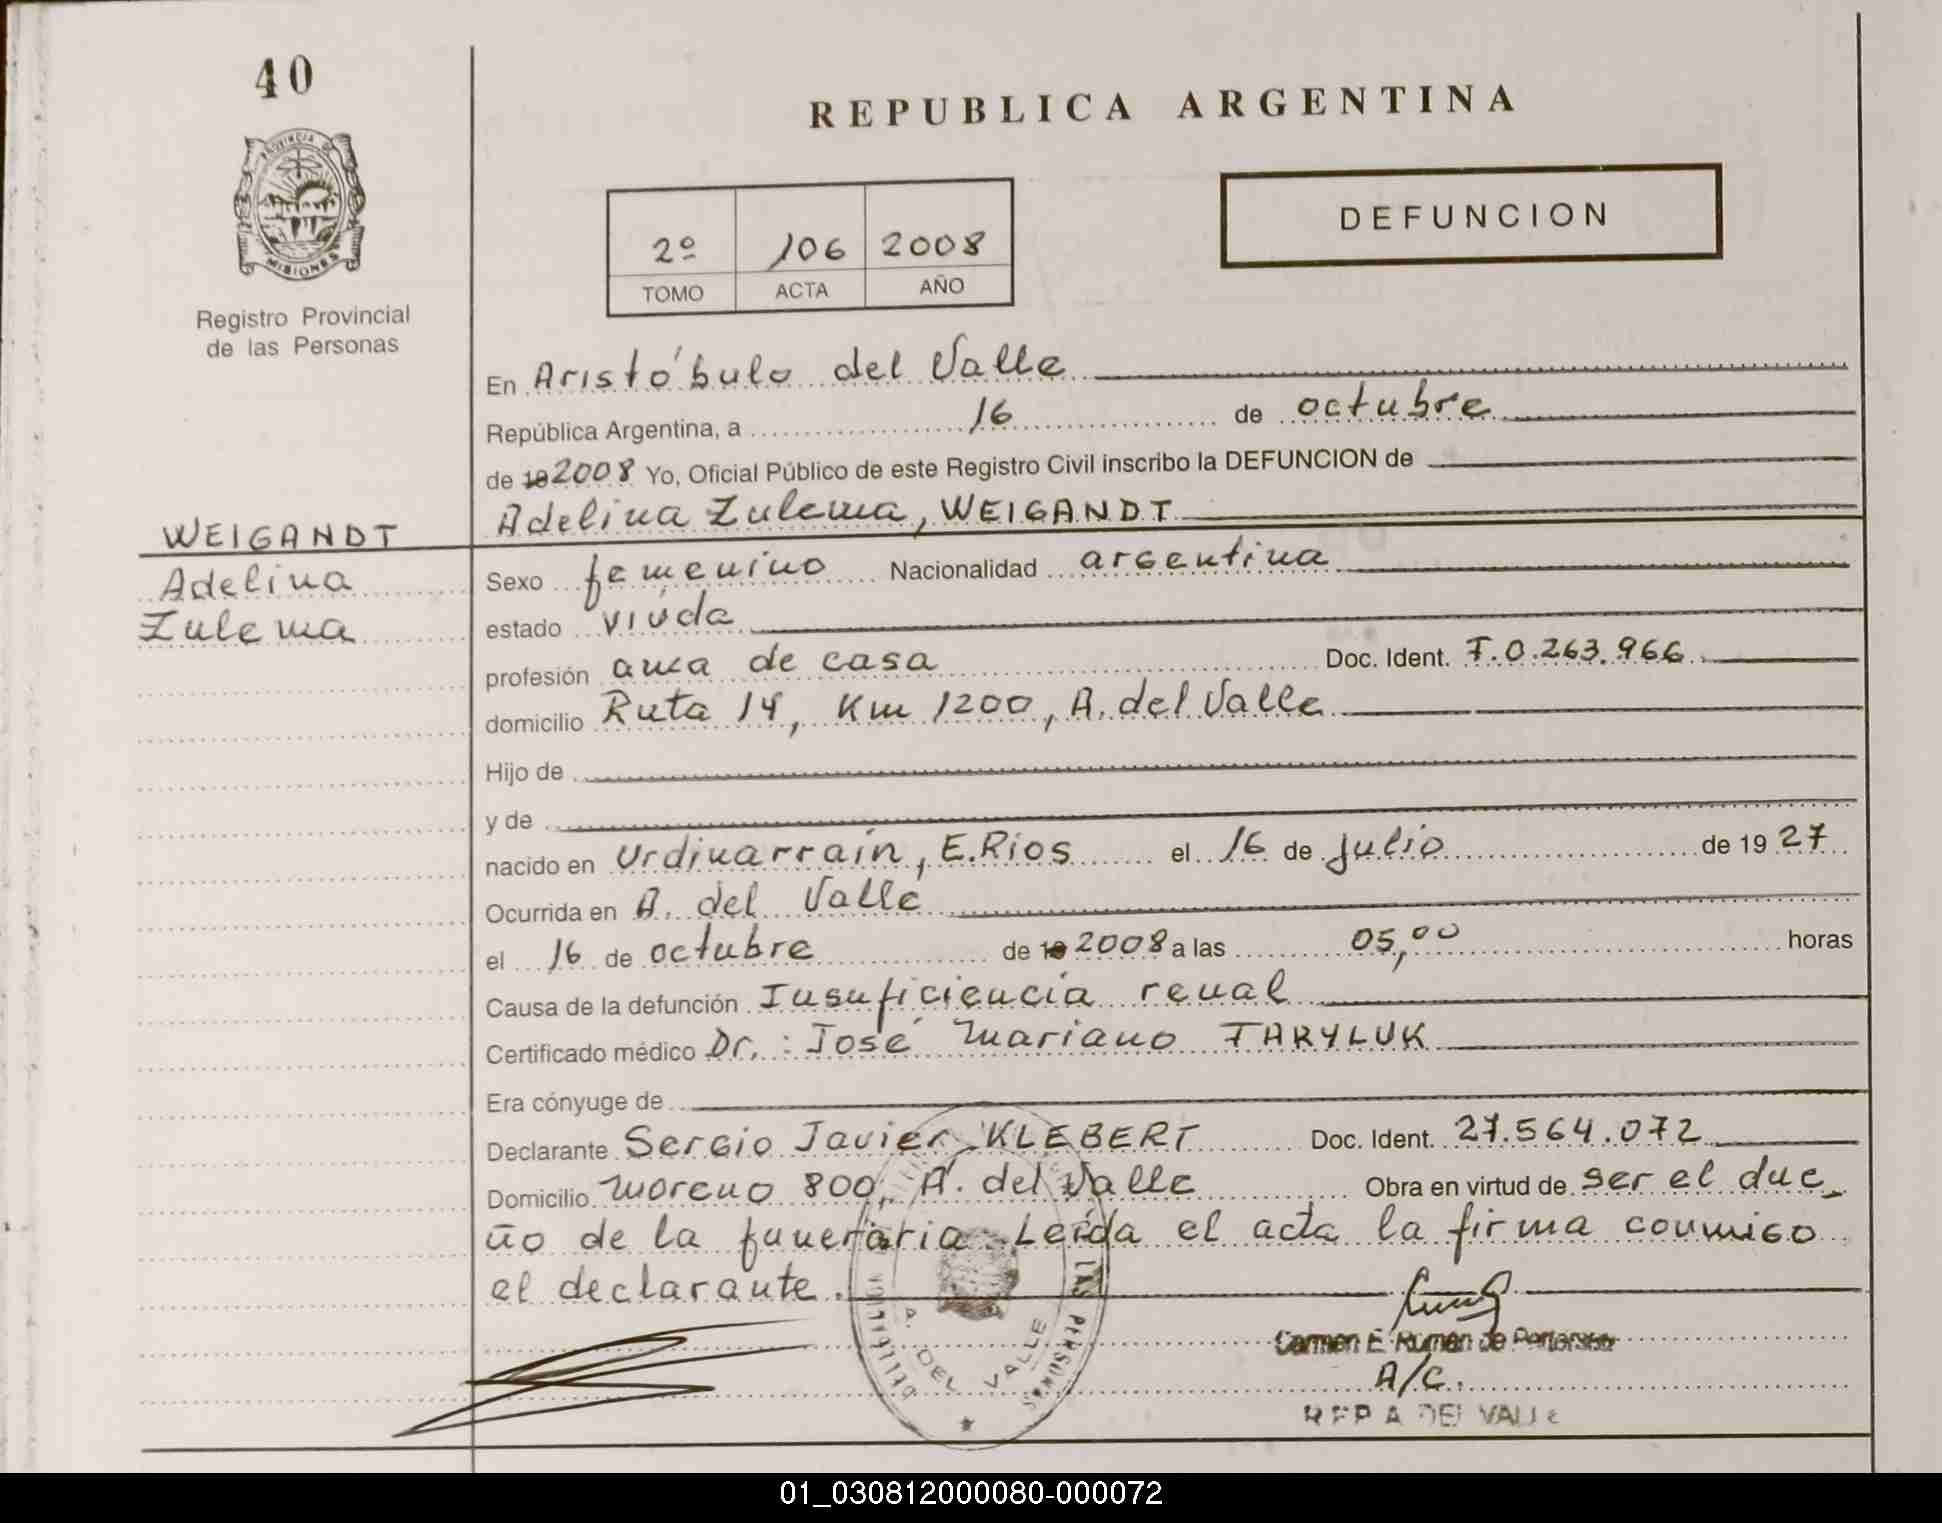 40
REPUBLICA ARGENTINA
PROVINCIA DE
MISIONES
Registro Provincial
de las Personas
DEFUNCION
2º 106 2008
TOMO ACTA AÑO
En Aristóbulo del Valle
República Argentina, a 16 de octubre
de 19 2008 Yo, Oficial Público de este Registro Civil inscribo la DEFUNCION de
Adelina Zulema, WEIGANDT
WEIGANDT
Adelina
Zulema
Sexo femenino Nacionalidad argentina
estado viuda
profesión ama de casa Doc. Ident. F.0.263.966
domicilio Ruta 14, Km 1200, A. del Valle
Hijo de
y de
nacido en Urdinarrain, E.Rios el 16 de julio de 19 27
Ocurrida en A. del Valle
el 16 de octubre de 19 2008 a las 05,00 horas
Causa de la defunción Insuficiencia renal
Certificado médico Dr.: José Mariano TARYLUK
Era cónyuge de
Declarante Sergio Javier KLEBERT Doc. Ident. 27.564.072
Domicilio Moreno 800, A. del Valle Obra en virtud de ser el due_
ño de la funeraria. Leída el acta la firma conmigo
el declarante.
A. DEL VALLE
LAS PERSONAS
Carmen E. Román de
A/C.
A DEL VALLE
01_030812000080-000072